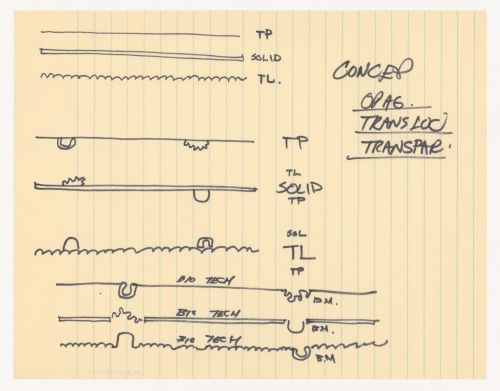 TP
SOLID
TL.
CONCEP
OPAG.
TRANSLUC
TRANSPAR.
TP
TL
SOLID
TP
SOL
TL
TP
BIO TECH
B.M.
BIO TECH
B.M.
BIO TECH
B.M